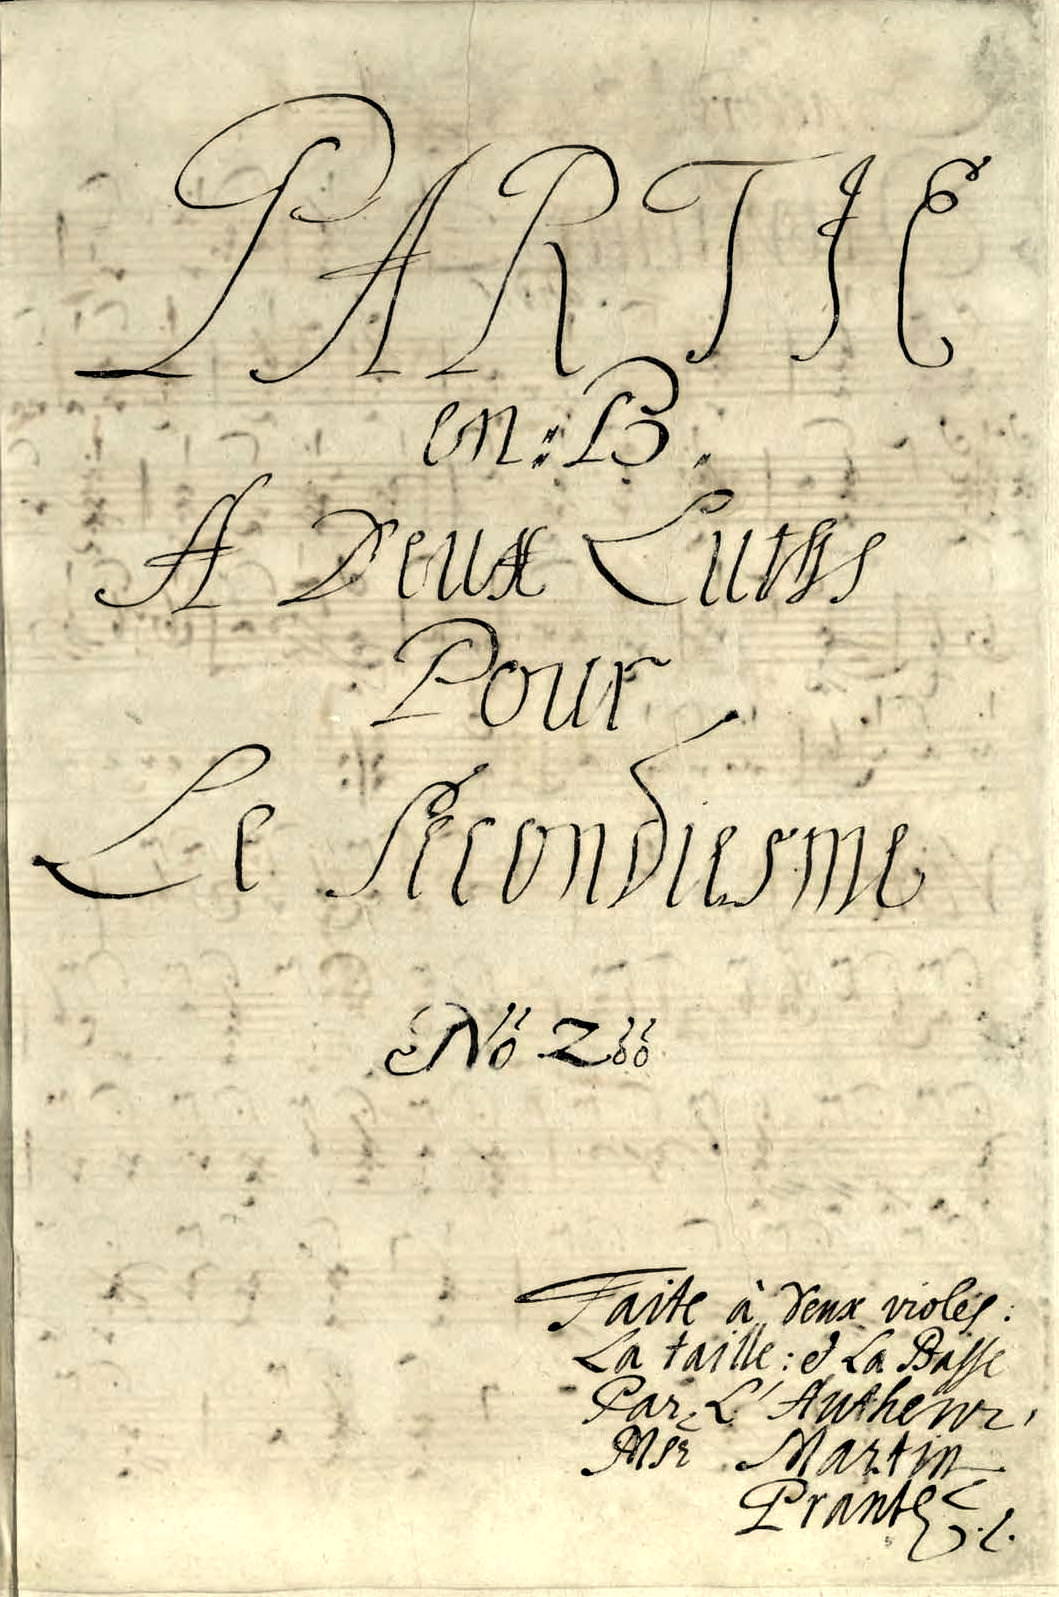 PARTIE
en: B.
A Deux Luths
Pour
Le Secondiesme
No 2
Faite à deux violes:
La taille: & La Basse
Par L'Autheur,
Msr Martin
Prante